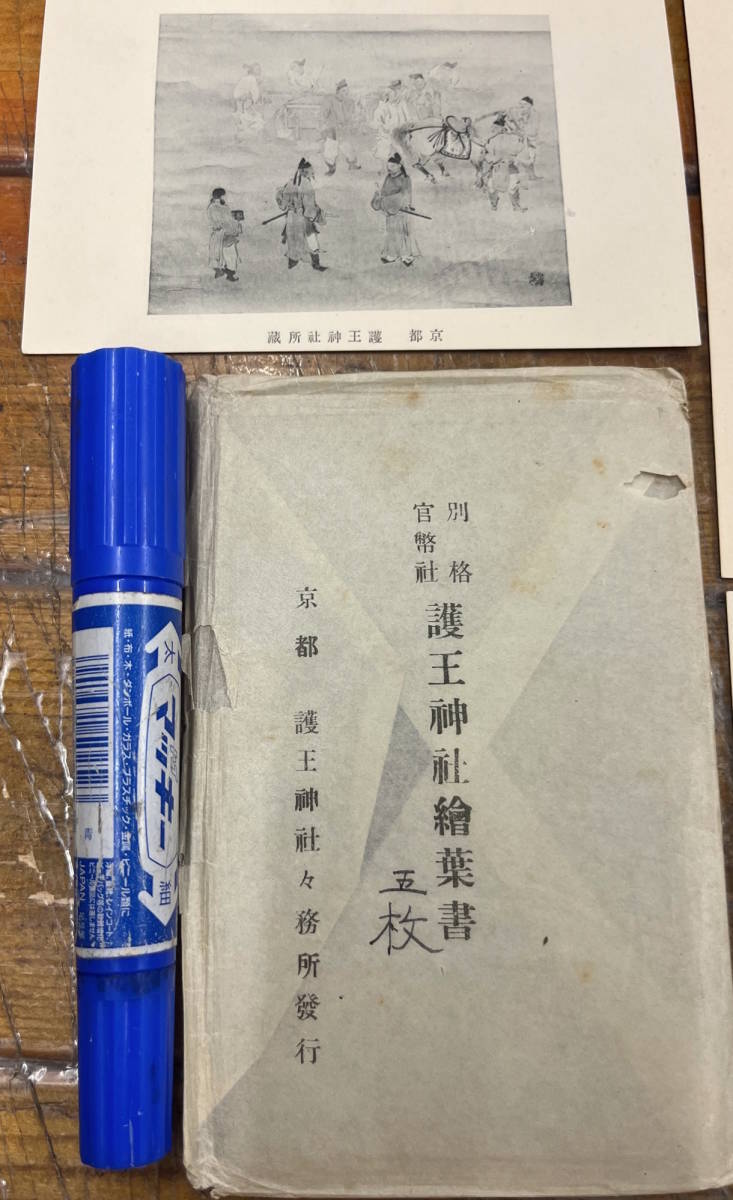 京都　護王神社所蔵
別格
官幣社
護王神社繪葉書
五枚
京都　護王神社々務所發行
太
マッキー
細
紙・布・木・ダンボール・ガラス・プラスチック・金属・ビニール類に
青
JAPAN